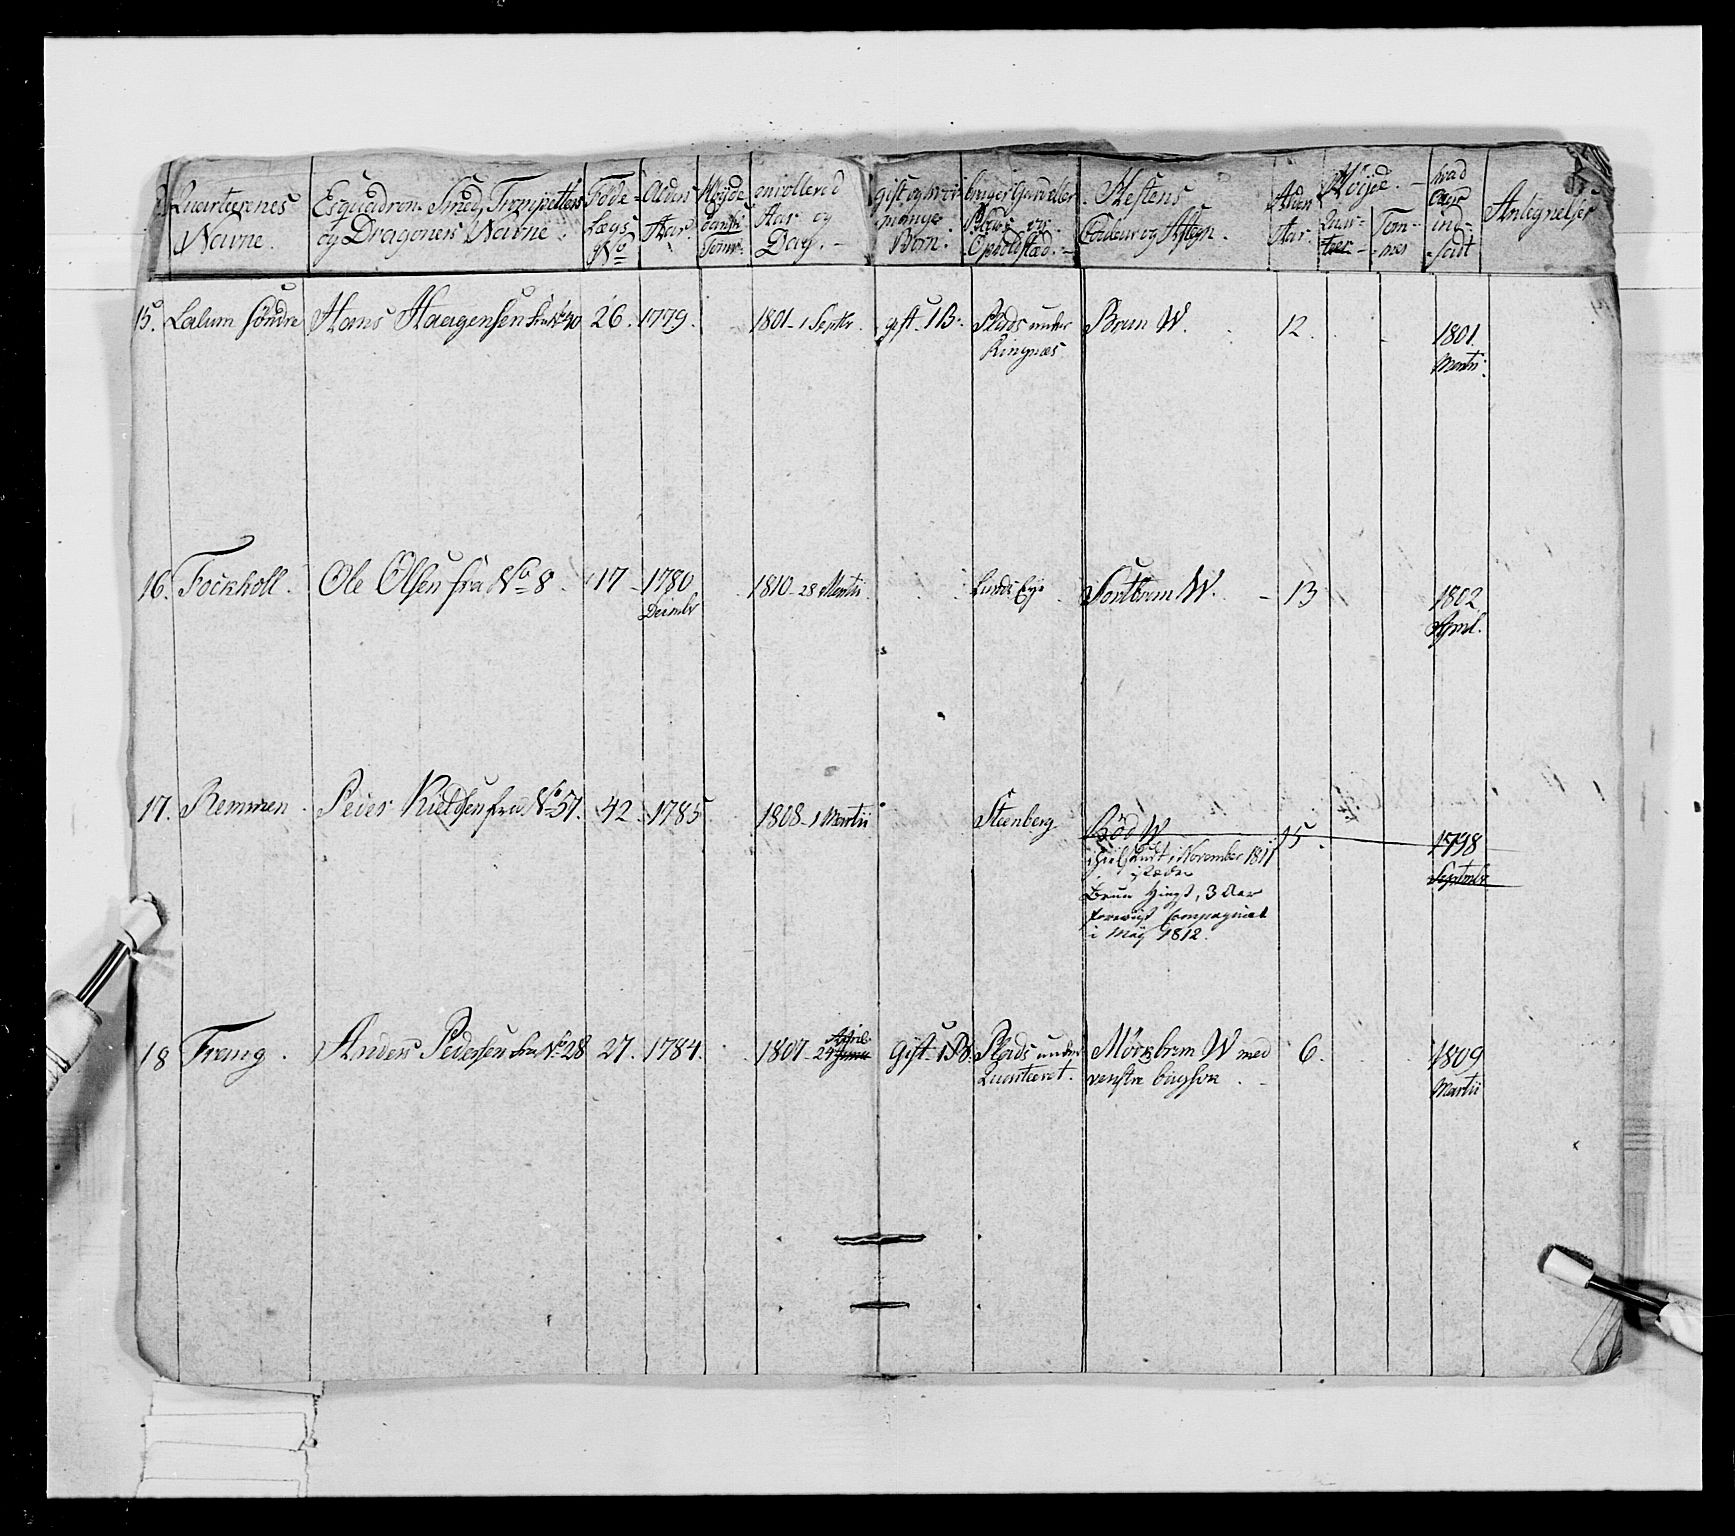 Quarteerenes Navne.
Esquadron Smed, Trompetters og Dragoners Navne.
Føde-Lægs No
Alders Aar.
Høyde danske Tomr.
enrollered Aar og Dag.
gift og hvor mange Børn.
Plads og Opholdsted.
Hestens Couleur og Afteyn.
Alder Aar.
Høyde.
Quar-teer
Tom-mer
hvad Aar ind-sadt
Antegnelser
15. Lalum søndre Hans Haagensen fra No 40 26. 1779. 1801 - 1 Septbr. gift 1 B. Plads under Brun W. 12. 1801.
Ringnæs Martii.
16. Fockholl. Ole Olsen fra No 8. 17 1780 1810 - 28 Martii. Lunds Eye Sortbrun W. 13 1802
Decembr April.
17. Remmen. Peder Kield­sen fra No 57. 42 1785 1808 - 1 Martii Steenberg Rød W 15. 1798
Septembr
i November 1811
istæden
Brun Hingst, 3 Aar
forevist Compagniet
i May 1812.
18 Frang. Anders Pedersen fra No 28 27. 1784. 1807 - 24 Junii April Gift 1 B. Plads under Mörkbrun W med 6. 1809
Quarteeret. venstre bagfod. Martii